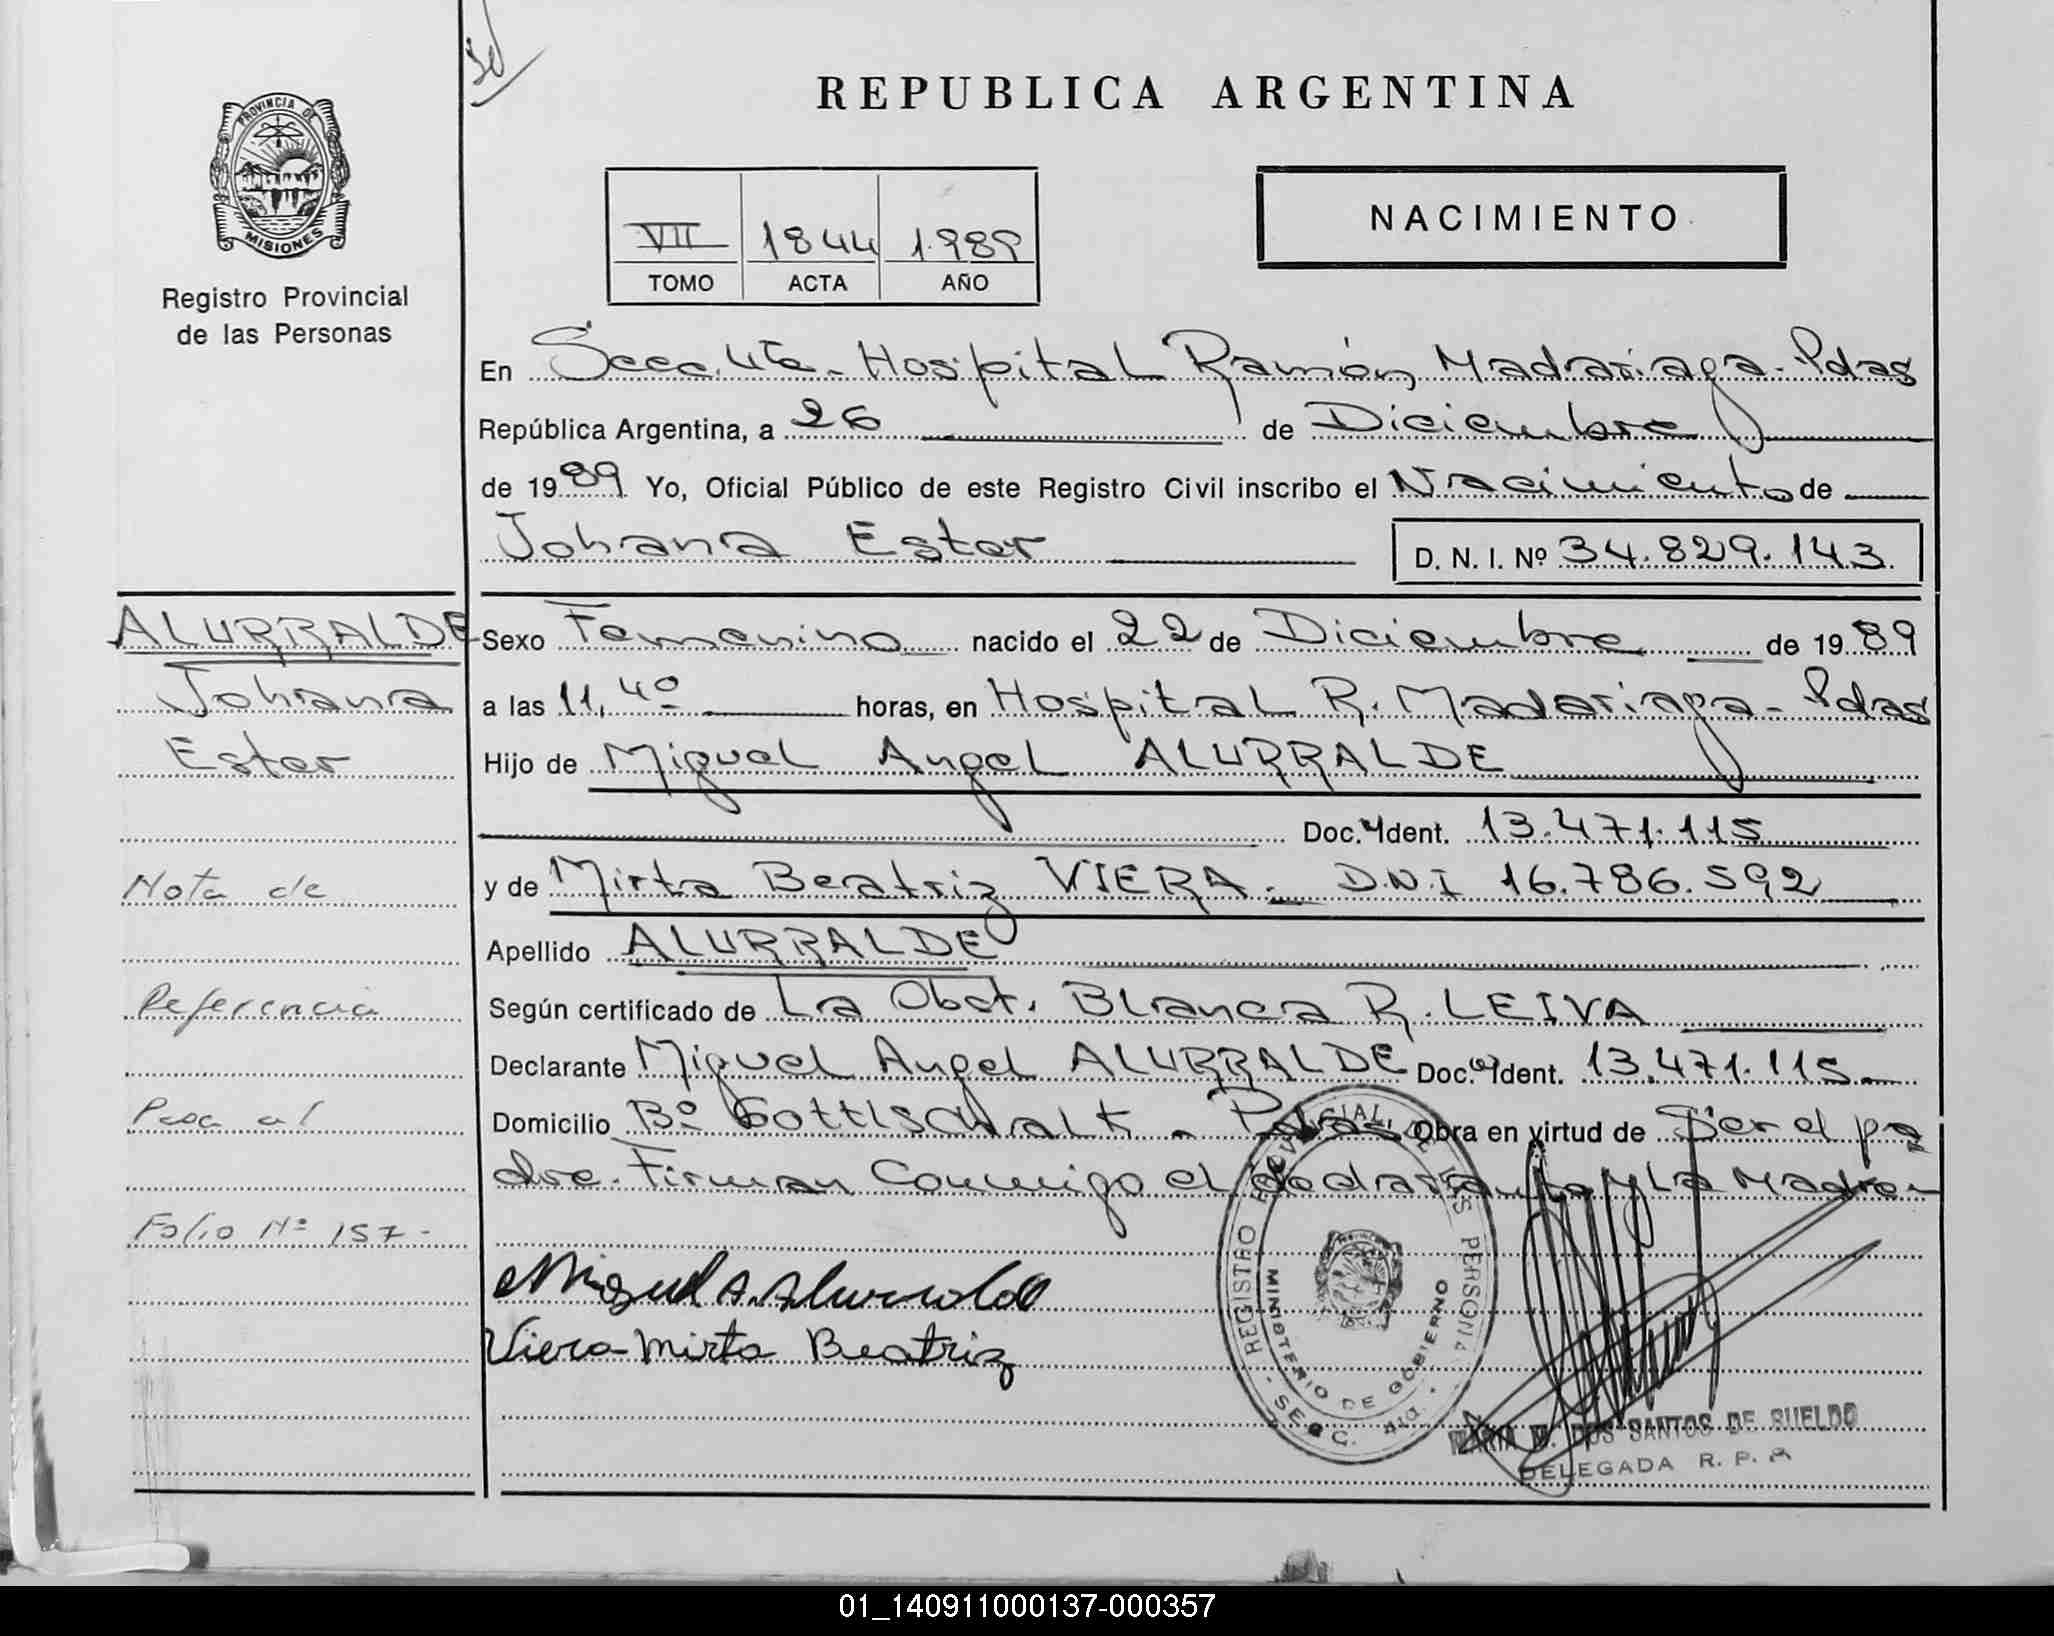 REPUBLICA ARGENTINA
PROVINCIA DE
MISIONES
Registro Provincial
de las Personas
NACIMIENTO
VII 1844 1.989
TOMO ACTA AÑO
En Secc. 4ta - Hospital Ramón Madariaga - Pdas
República Argentina, a 26 de Diciembre
de 1989 Yo, Oficial Público de este Registro Civil inscribo el Nacimiento de
Johana Ester
D. N. I. Nº 34.829.143
ALURRALDE
Johana
Ester
Nota de
Referencia
Pasa al
Folio Nº 157 -
Sexo Femenino nacido el 22 de Diciembre de 1989
a las 11,40 horas, en Hospital R. Madariaga - Pdas
Hijo de Miguel Angel ALURRALDE
Doc. Ident. 13.471.115
y de Mirta Beatriz VIERA - D.N.I 16.786.592
Apellido ALURRALDE
Según certificado de La Obst. Blanca R. LEIVA
Declarante Miguel Angel ALURRALDE Doc. Ident. 13.471.115 -
Domicilio Bº Gottlschalk - Pdas Obra en virtud de Ser el pa
dre. Firman Conmigo el declarante y la Madre -
Miguel A. Alurralde
Viera Mirta Beatriz
REGISTRO PROVINCIAL DE LAS PERSONAS
MINISTERIO DE GOBIERNO
- SECC. 4ta. -
MARIA DOS SANTOS DE SUELDO
DELEGADA R. P. P.
01_140911000137-000357